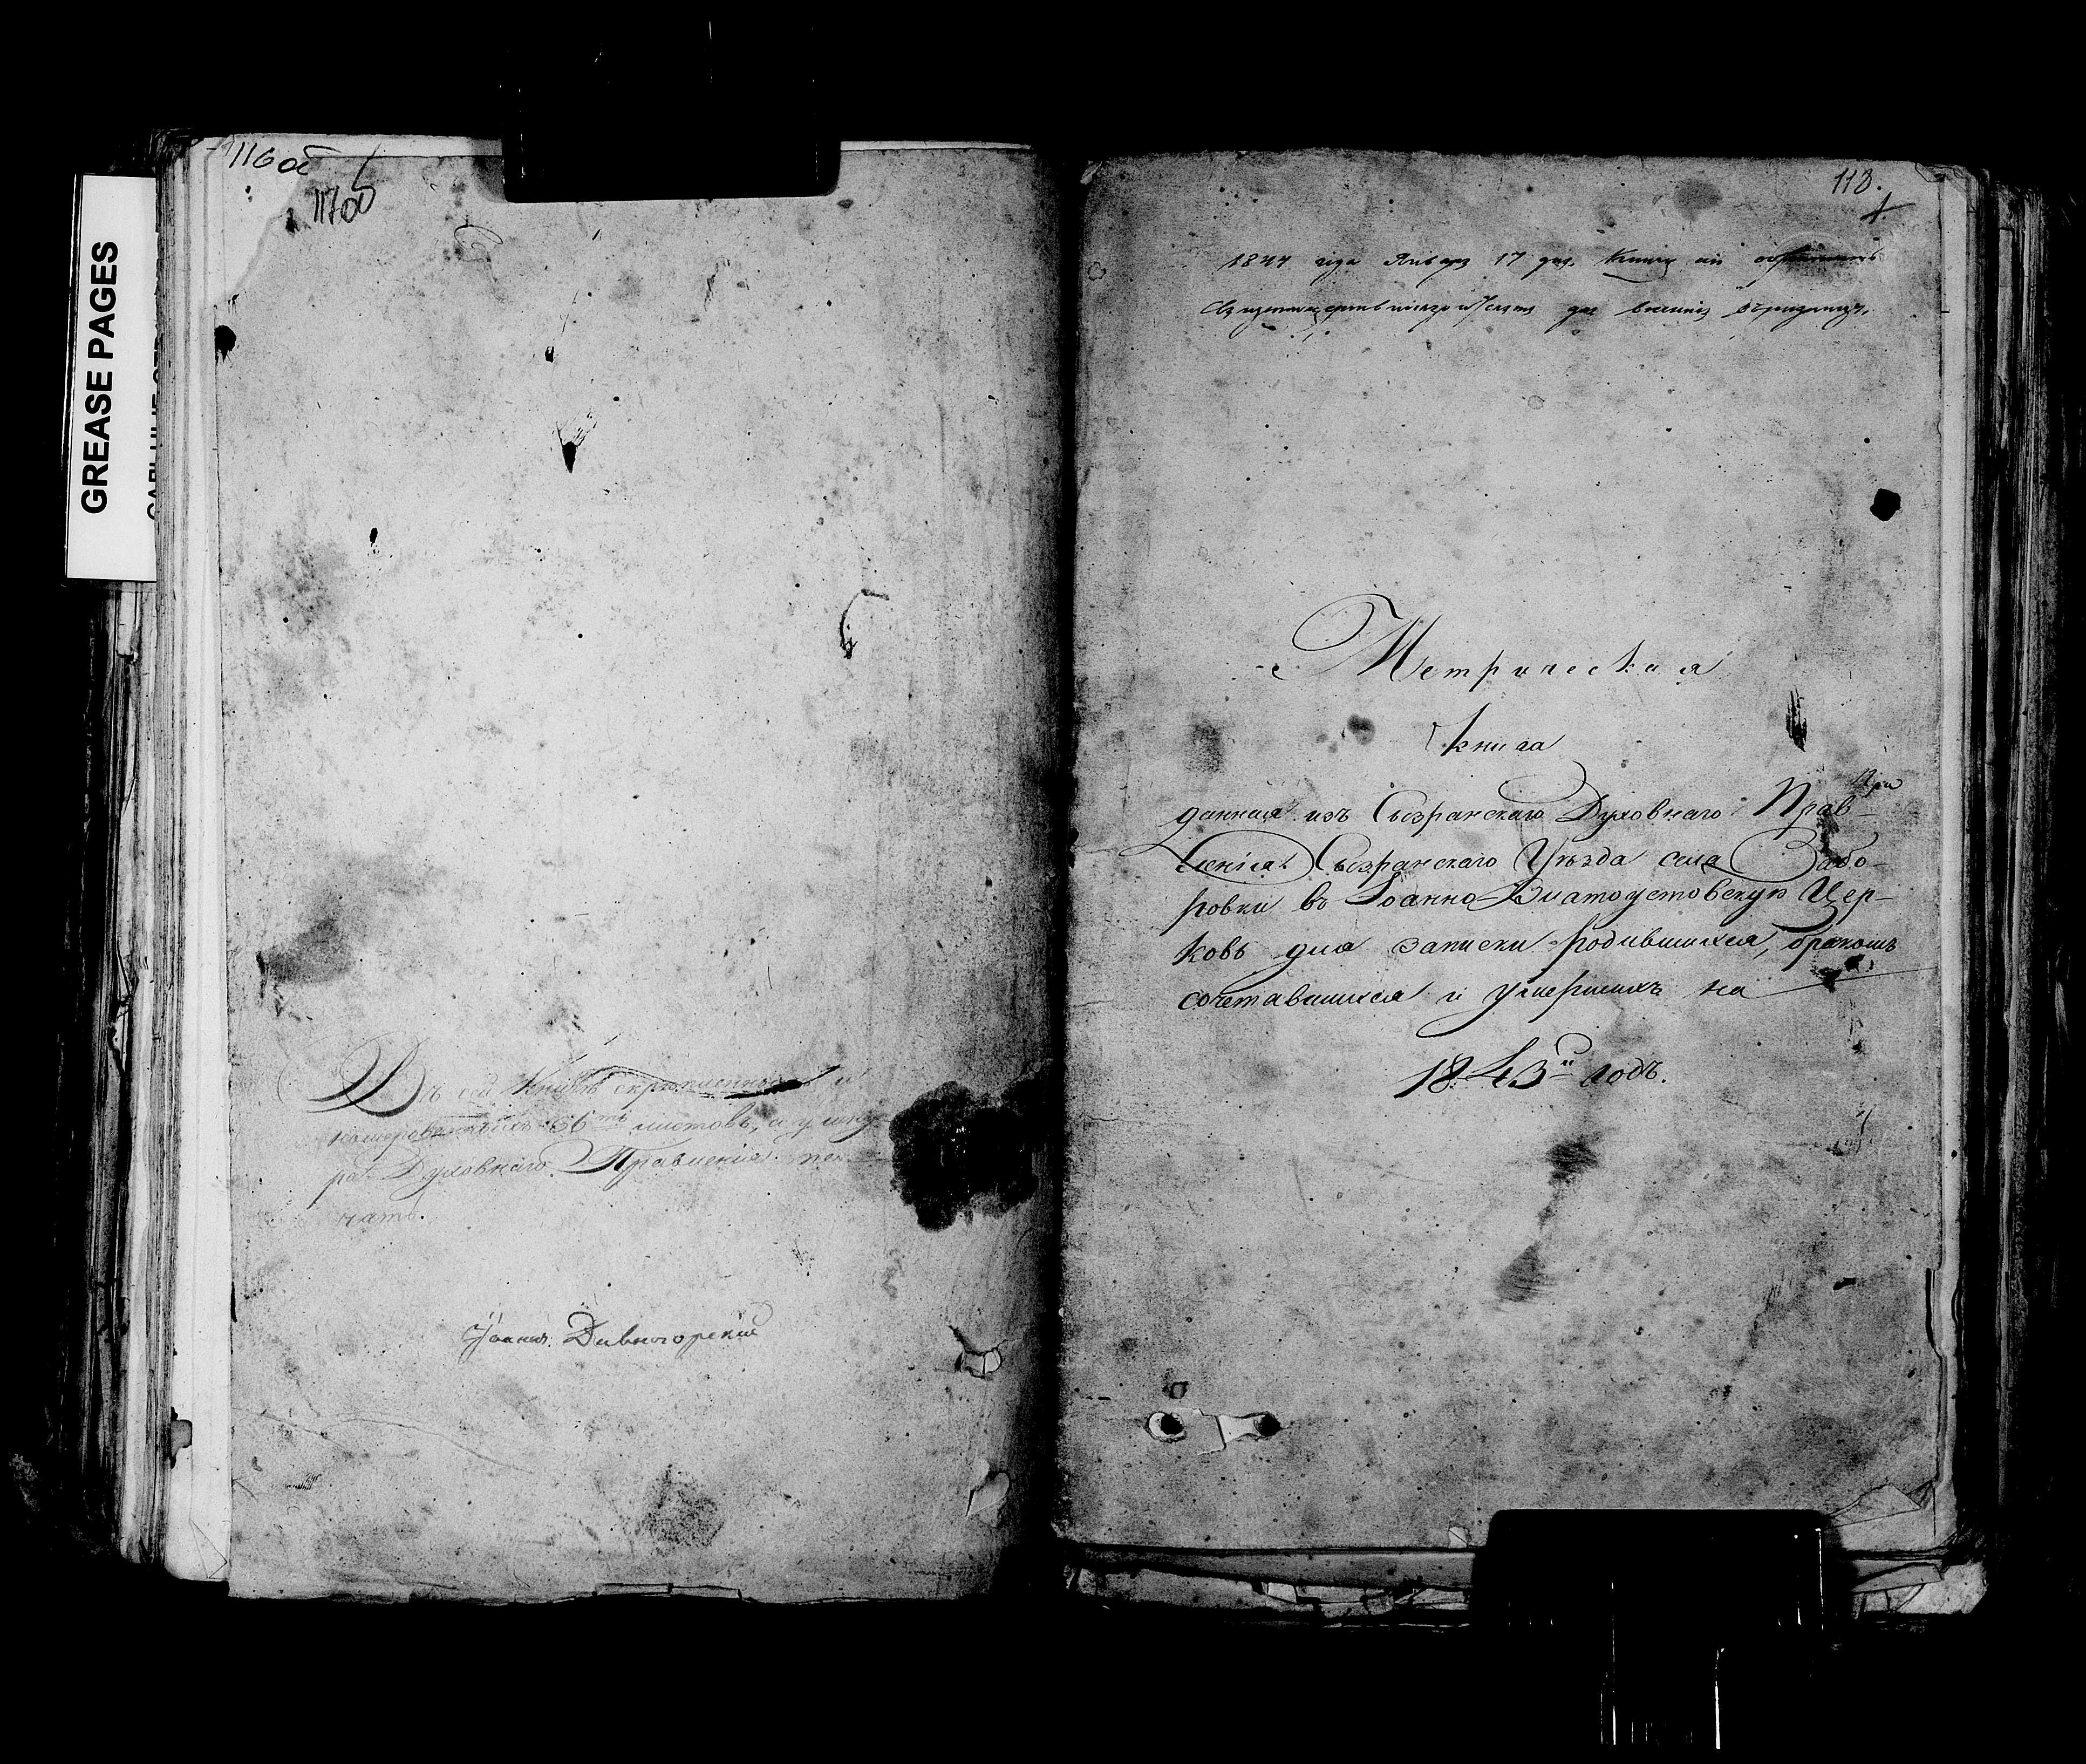 GREASE PAGES
116 об
117об
Въ сей Книгѣ скрѣпленныхъ и
номерованныхъ 36ть листовъ, и у шну
ра Духовнаго Правленія пе
чать.
Іоаннъ Дивногорскій
118.
1844 года Января 17 дня. Книгу сію
для
Метрическая
книга
данная изъ Сызранскаго Духовнаго Прав
при
ленія Сызранскаго Уѣзда села Забо-
ровки въ Іоанно-Златоустовскую Цер-
ковь для записки родившихся, бракомъ
сочетавшихся и умершихъ на
1843й годъ.